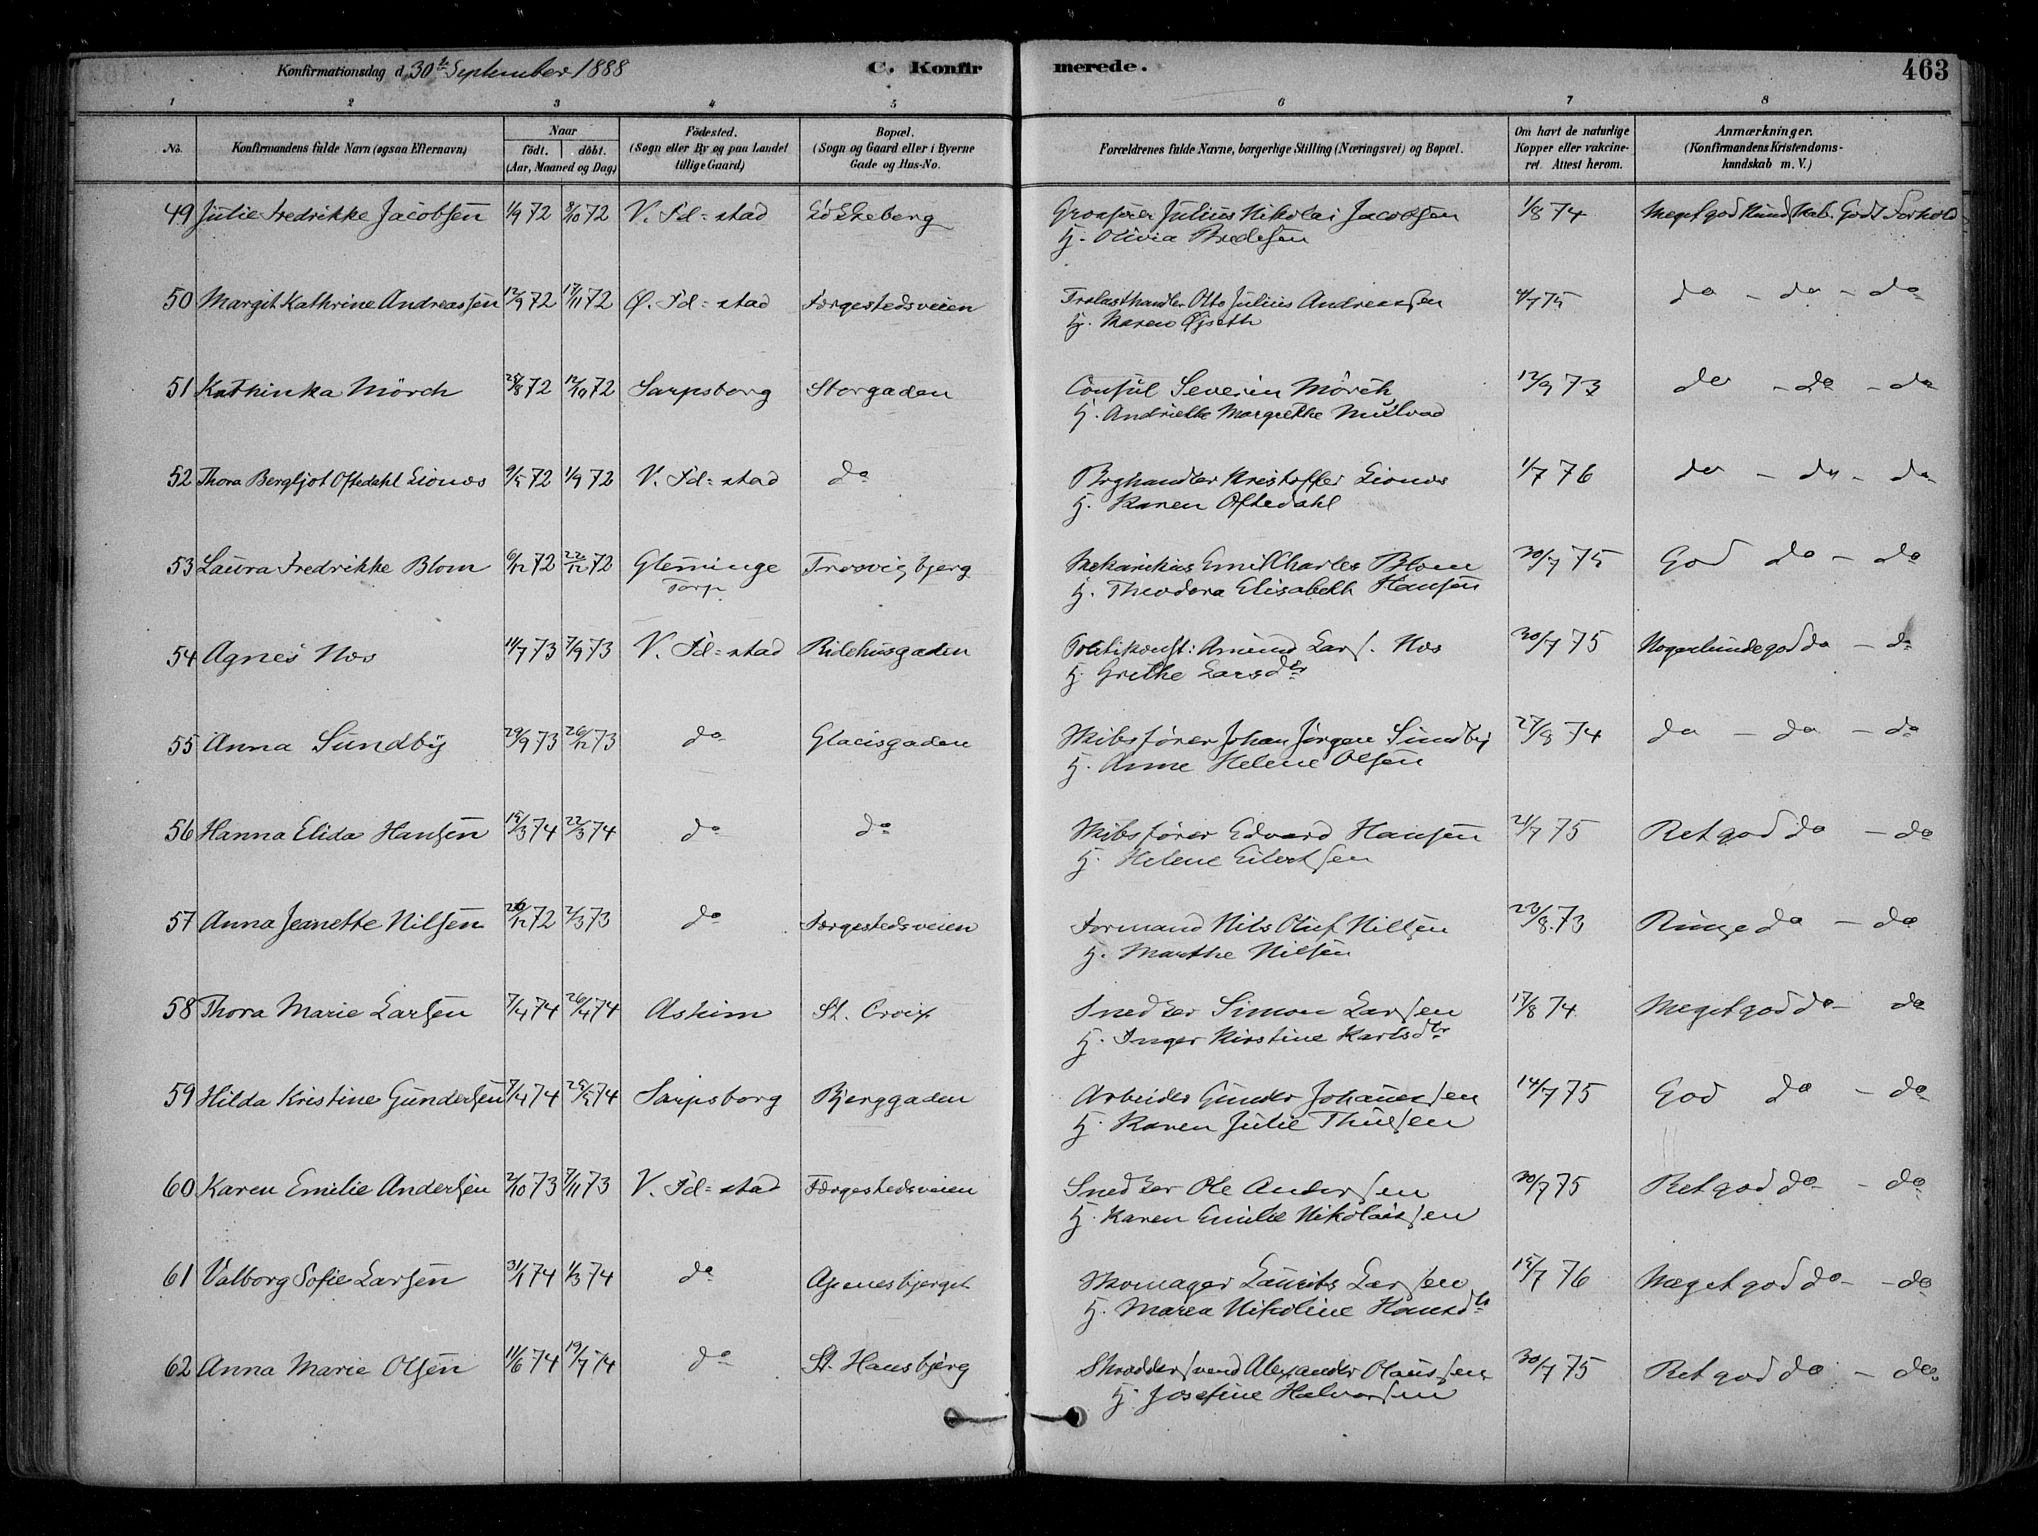 Konfirmationsdag d. 30te September 1888 C. Konfir merede. 463
1 2 3 4 5 6 7 8
No. Konfirmandens fulde Navn (ogsaa Efternavn) Naar födt. döbt. (Aar, Maaned og Dag) Födested. (Sogn eller By og paa Landet tillige Gaard) Bopæl. (Sogn og Gaard eller i Byerne Gade og Hus-No. Forældrenes fulde Navne, borgerlige Stilling (Næringsvei) og Bopæl. Om havt de naturlige Kopper eller vakcineret. Attest herom. Anmærkninger. (Konfirmandens Kristendomskundskab m. V.)
49 Julie Fredrikke Jacobsen 1/9 72 8/10 72 V. Fd=stad Ekeberg Grosserer Julius Nikolai Jacobsen 1/8 74 Meget god Kundskab. Godt Forhold
H. Olivia Bredesen
50 Margit Kathrine Andreassen 12/9 72 17/11 72 Ø. Fd=stad Færgestedsveien Trælasthandler Otto Julius Andreassen 4/7 75 do - do - do
H. Maren Øyseth
51 Kathinka Mörch 28/8 72 12/10 72 Sarpsborg Storgaden Consul Severin Mörch 12/9 73 do - do - do
H. Andrikke Margrethe
52 Thora Bergljot Oftedahl Lionæs 9/5 72 1/9 72 V. Fd=stad do Boghandler Kristoffer Lionæs 1/7 76 do - do - do
H. Karen Oftedahl
53 Laura Fredrikke Blom 6/12 72 22/12 72 Glemminge Trosvigbjerg Mekanikus Emil Charles Blom 30/7 75 God do - do
Torp H. Theodora Elisabeth Hansen
54 Agnes Næs 11/7 73 7/9 73 V. Fd=stad Ridehusgaden Politikonst: Amund Lars. Næs 30/7 75 Nogenlunde god do - do
H. Grethe Larsdtr
55 Anna Sundby 29/9 73 26/12 73 do Glacisgaden Skibsfører Johan Jörgen Sundby 27/8 74 do - do - do
H. Anne Helene Olsen
56 Hanna Elida Hansen 15/3 74 22/3 74 do do Skibsfører Edvard Hansen 21/7 75 Ret god do - do
H. Helene Eilertsen
57 Anna Jeanette Nilsen 26/12 72 2/3 73 do Færgestedsveien Formand Nils Oluf Nilsen 23/8 73 Ringe do - do
H. Marthe Nilsen
58 Thora Marie Larsen 7/4 74 26/4 74 Askim St. Croix Snedker Simon Larsen 17/8 74 Meget god do - do
H. Inger Kirstine Karlsdtr
59 Hilda Kristine Gundersen 7/4 74 25/5 74 Sarpsborg Bjerggaden Arbeider Gunder Johannesen 14/7 75 God do - do
H. Karen Julie Thuesen
60 Karen Emilie Andersen 2/10 73 7/11 73 V. Fd=stad Færgestedsveien Snedker Ole Andersen 30/7 75 Ret god do - do
H. Karen Emilie Nikolaissen
61 Valborg Sofie Larsen 31/1 74 1/3 74 do Apenesbjerget Skomager Laurits Larsen 15/7 76 Meget god do - do
H. Maren Nikoline Hansdtr
62 Anna Marie Olsen 11/6 74 19/7 74 do St. Hansbjerg Skræddersvend Alexander Olaussen 30/7 75 Ret god do - do
H. Josefine Halvorsen